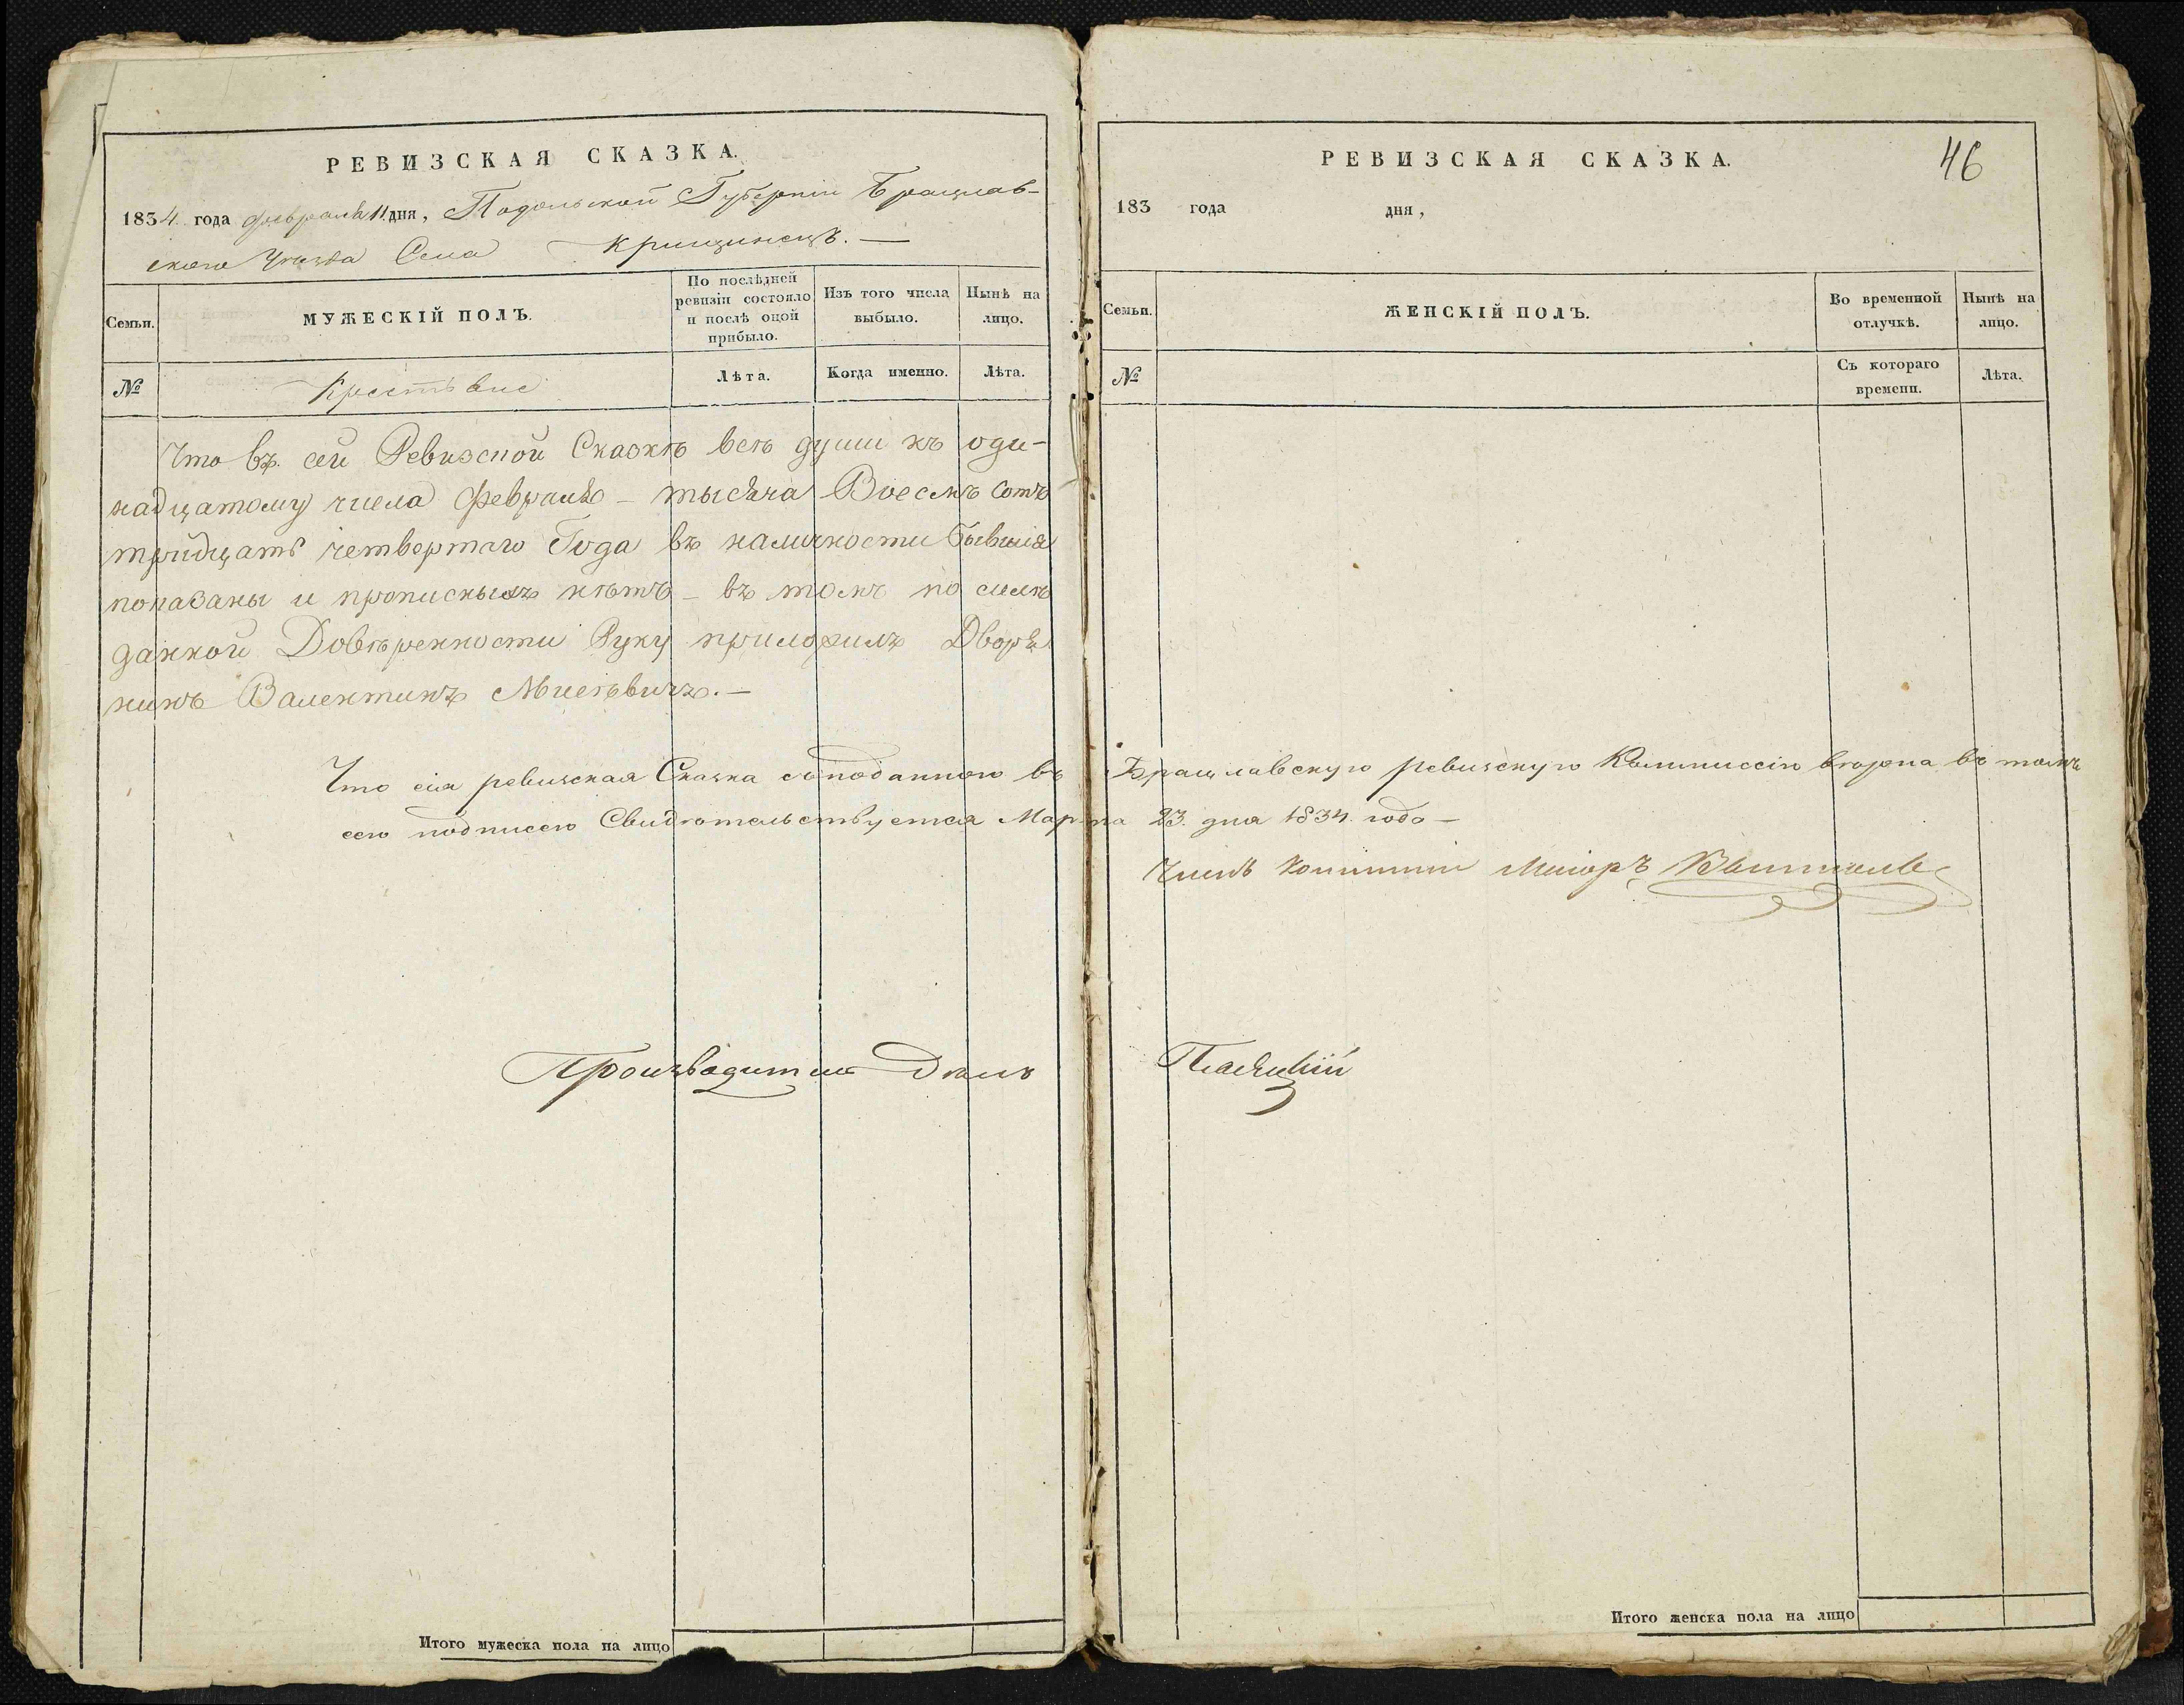 РЕВИЗСКАЯ СКАЗКА.
1834. года февраля 11 дня, Подольской Губерніи Брацлав-
скаго Уѣзда Села Крищинецъ. —
Семьи.
МУЖЕСКІЙ ПОЛЪ.
По послѣдней ревизіи состояло и послѣ оной прибыло.
Изъ того числа выбыло.
Нынѣ на лицо.
№
Крестьяне
Лѣта.
Когда именно.
Лѣта.
Что въ сей Ревизской Сказкѣ всѣ души къ оди-
надцатому числа февраля – тысяча Восемъ сотъ
тридцать четвертаго Года въ наличности бывшія
показаны и прописныхъ нѣтъ – въ томъ по силѣ
данной Довѣренности Руку приложилъ Дворя
нинъ Валентинъ
Что сія ревизская Сказка въ
сею подписью Свидѣтельствуется Мар-
Производитель Дѣлъ
Итого мужеска пола на лицо
РЕВИЗСКАЯ СКАЗКА.
46
183 года дня,
Семьи.
ЖЕНСКІЙ ПОЛЪ.
Во временной отлучкѣ.
Нынѣ на лицо.
№
Съ котораго времени.
Лѣта.
Брацлавскую ревизскую Коммиссію вѣрна въ томъ
та 23. дня 1834. года –
Членъ Коммиссіи Маіоръ
Итого женска пола на лицо